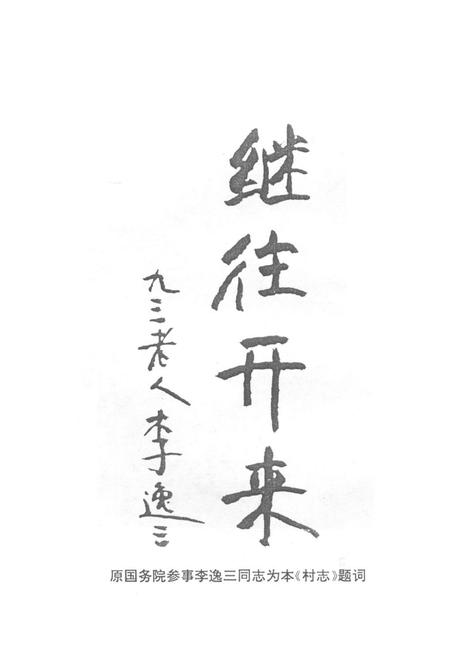 继往开来
九三老人李逸三
原国务院参事李逸三同志为本《村志》题词